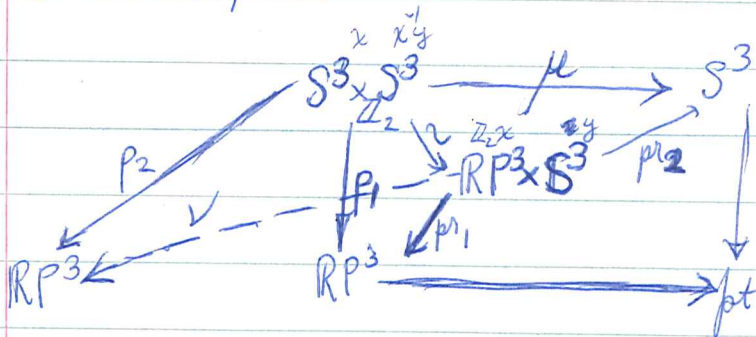 x x⁻¹y
S³ ×_{Z₂} S³ μ S³
p₂ ≀ Z₂x y
ν p₁ RP³×S³ pr₂
pr₁
RP³ RP³ pt